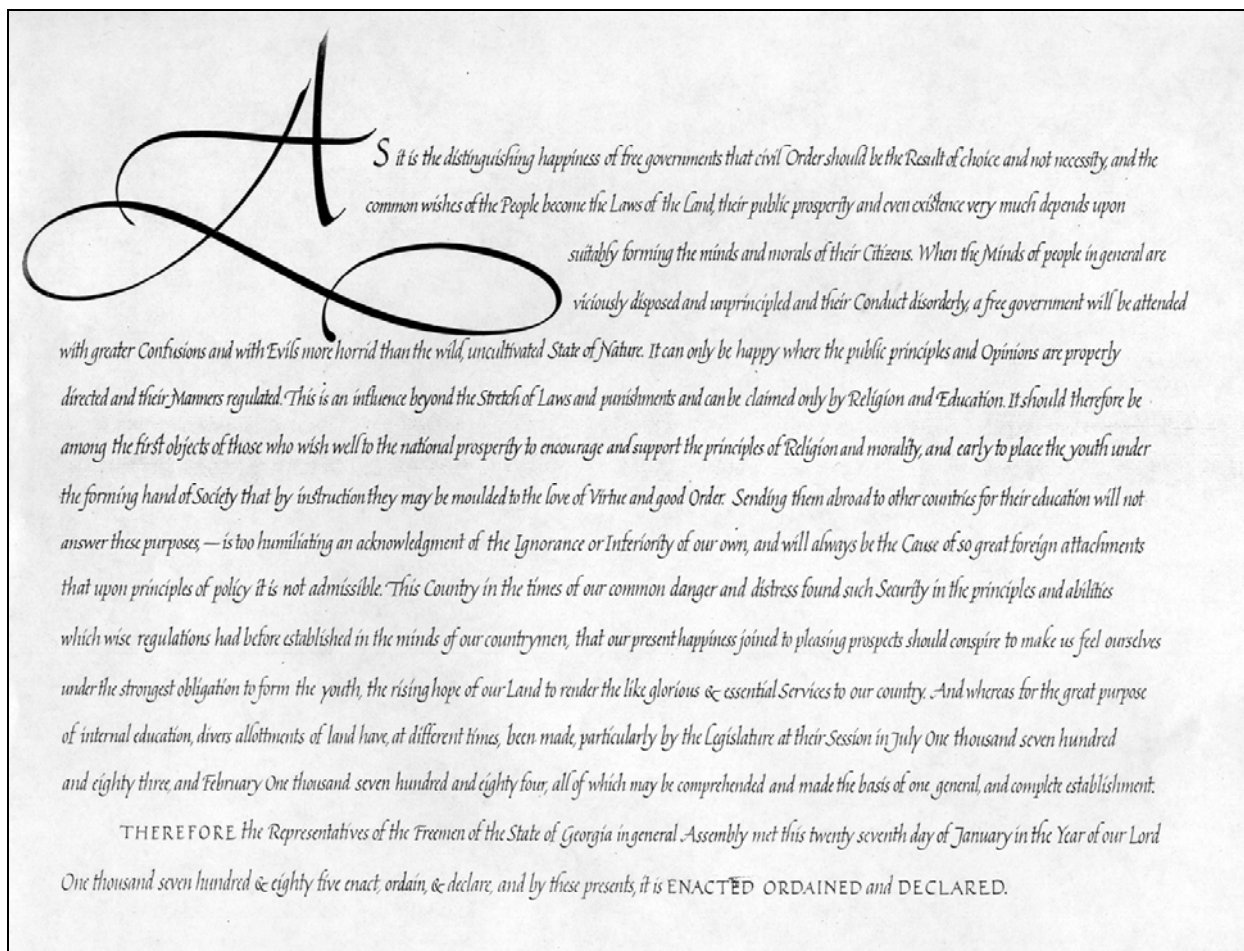 AS it is the distinguishing happiness of free governments that civil Order should be the Result of choice and not necessity, and the
common wishes of the People become the Laws of the Land, their public prosperity and even existence very much depends upon
suitably forming the minds and morals of their Citizens. When the Minds of people in general are
viciously disposed and unprincipled and their Conduct disorderly, a free government will be attended
with greater Confusions and with Evils more horrid than the wild, uncultivated State of Nature. It can only be happy where the public principles and Opinions are properly
directed and their Manners regulated. This is an influence beyond the Stretch of Laws and punishments and can be claimed only by Religion and Education. It should therefore be
among the first objects of those who wish well to the national prosperity to encourage and support the principles of Religion and morality, and early to place the youth under
the forming hand of Society that by instruction they may be moulded to the love of Virtue and good Order. Sending them abroad to other countries for their education will not
answer these purposes, — is too humiliating an acknowledgment of the Ignorance or Inferiority of our own, and will always be the Cause of so great foreign attachments
that upon principles of policy it is not admissible. This Country in the times of our common danger and distress found such Security in the principles and abilities
which wise regulations had before established in the minds of our countrymen, that our present happiness joined to pleasing prospects should conspire to make us feel ourselves
under the strongest obligation to form the youth, the rising hope of our Land to render the like glorious & essential Services to our country. And whereas for the great purpose
of internal education, divers allottments of land have, at different times, been made, particularly by the Legislature at their Session in July One thousand seven hundred
and eighty three, and February One thousand seven hundred and eighty four, all of which may be comprehended and made the basis of one general, and complete establishment.
THEREFORE the Representatives of the Freemen of the State of Georgia in general Assembly met this twenty seventh day of January in the Year of our Lord
One thousand seven hundred & eighty five enact, ordain, & declare, and by these presents, it is ENACTED ORDAINED and DECLARED.